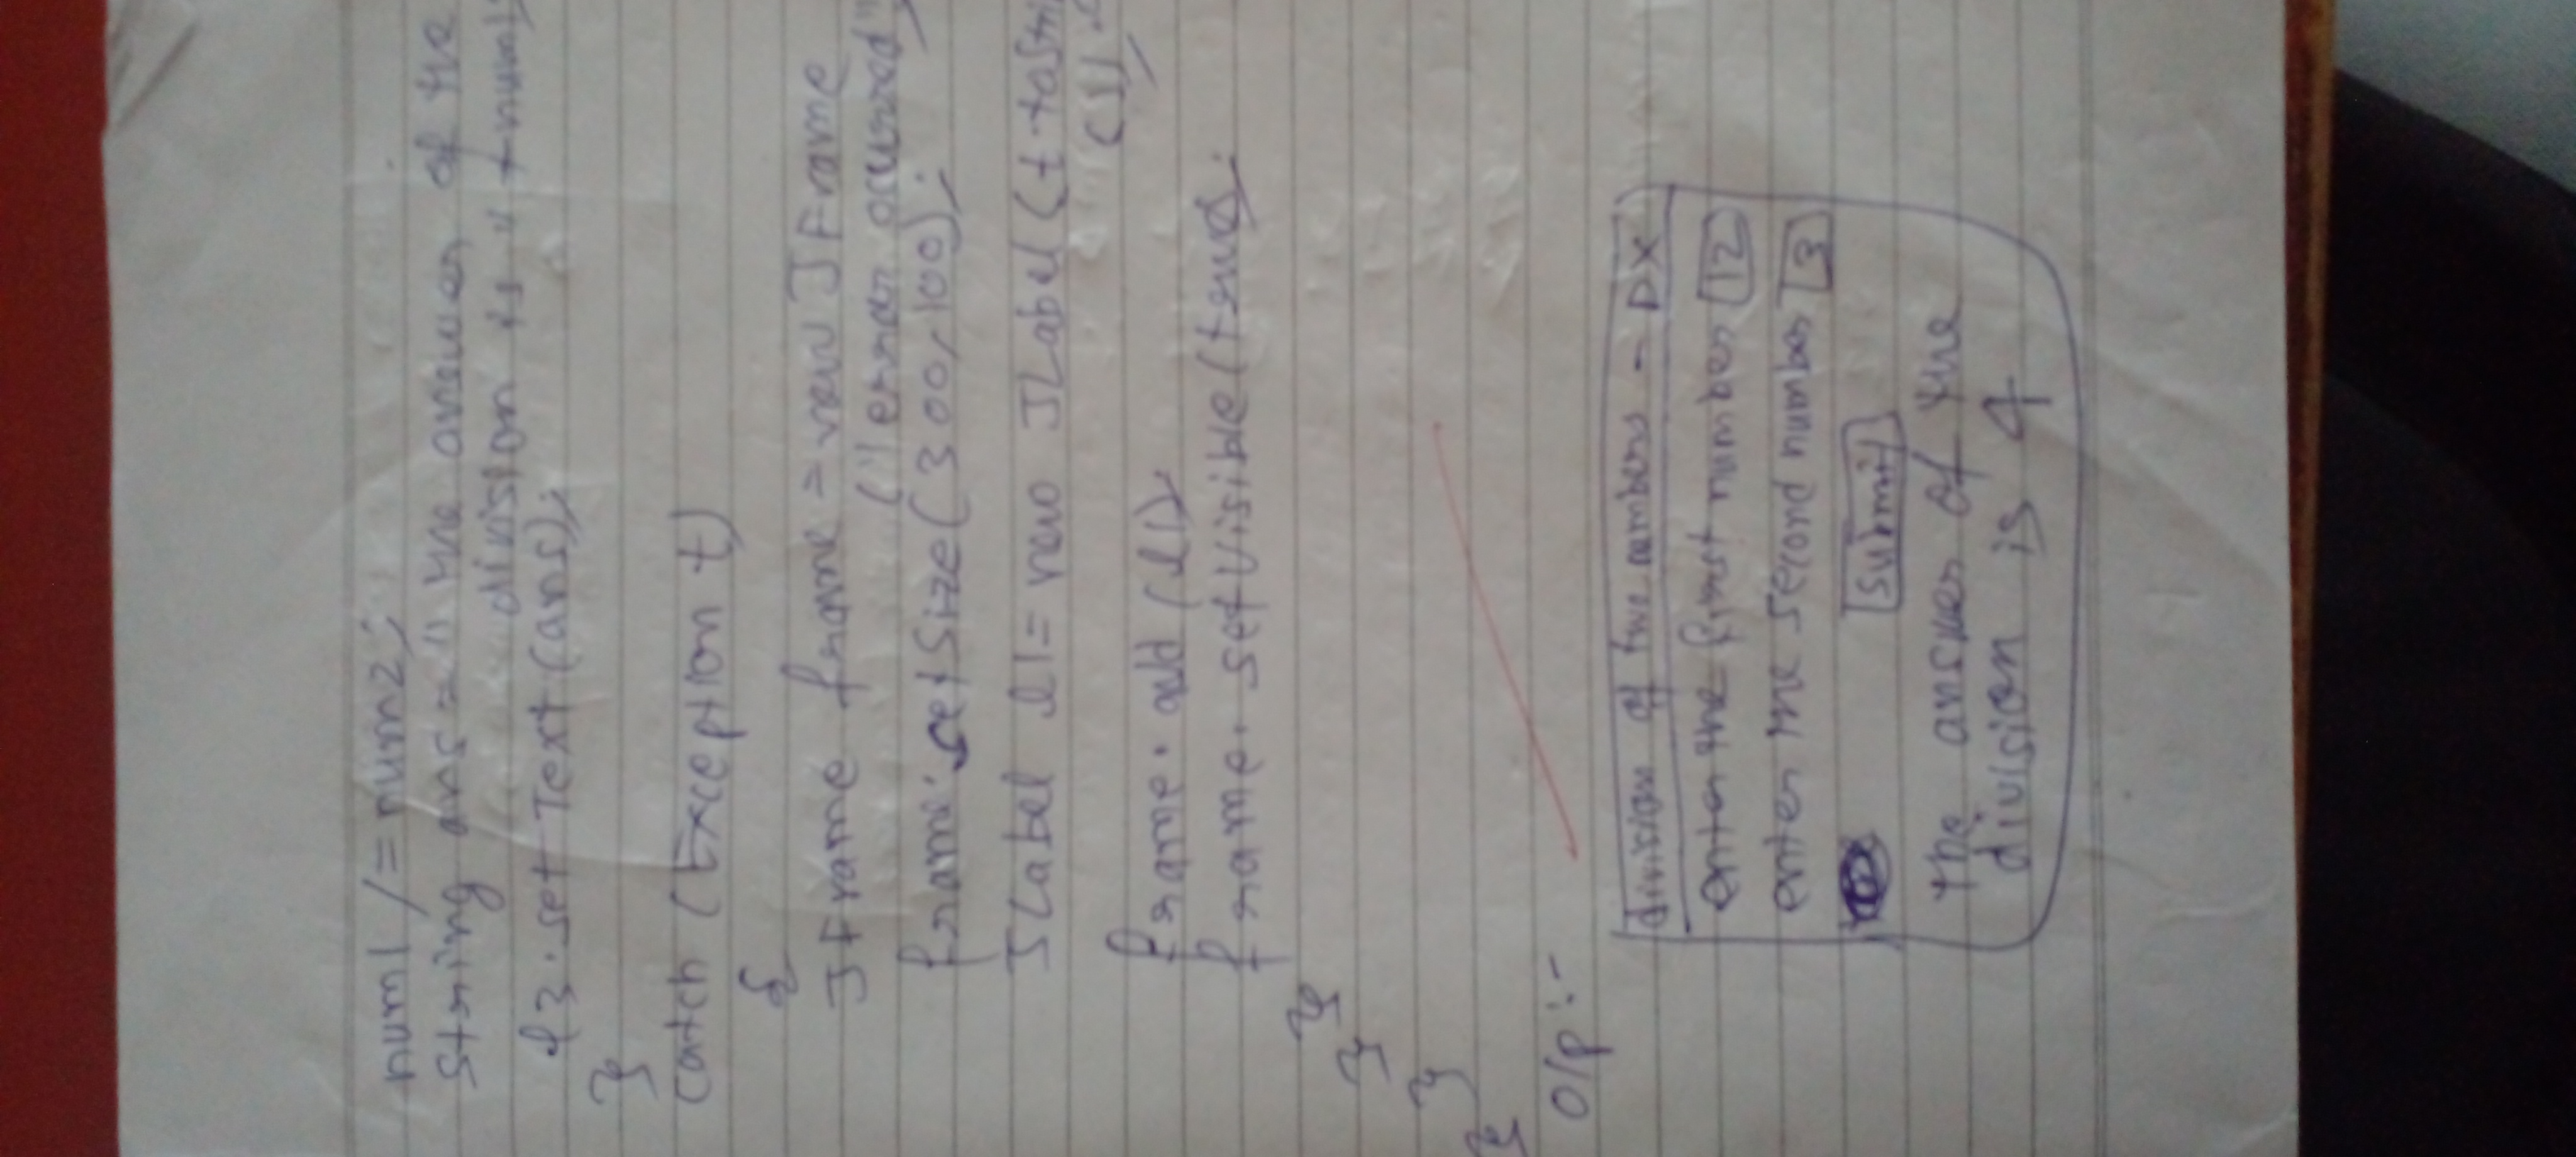 num1 /= num2;
String ans = "the answer of the
division is " + num1
l3.setText(ans);
}
catch (Exception t)
{
JFrame frame = new JFrame
("error occurred"
frame.setSize(300,100);
JLabel l1 = new JLabel(t.toStri
frame.add(l1);
frame.setVisible(true);
}
}
}
}
O/p :-
division of two numbers - DX
enter the first number 12
enter the second number 3
submit
the answer of the
division is 4